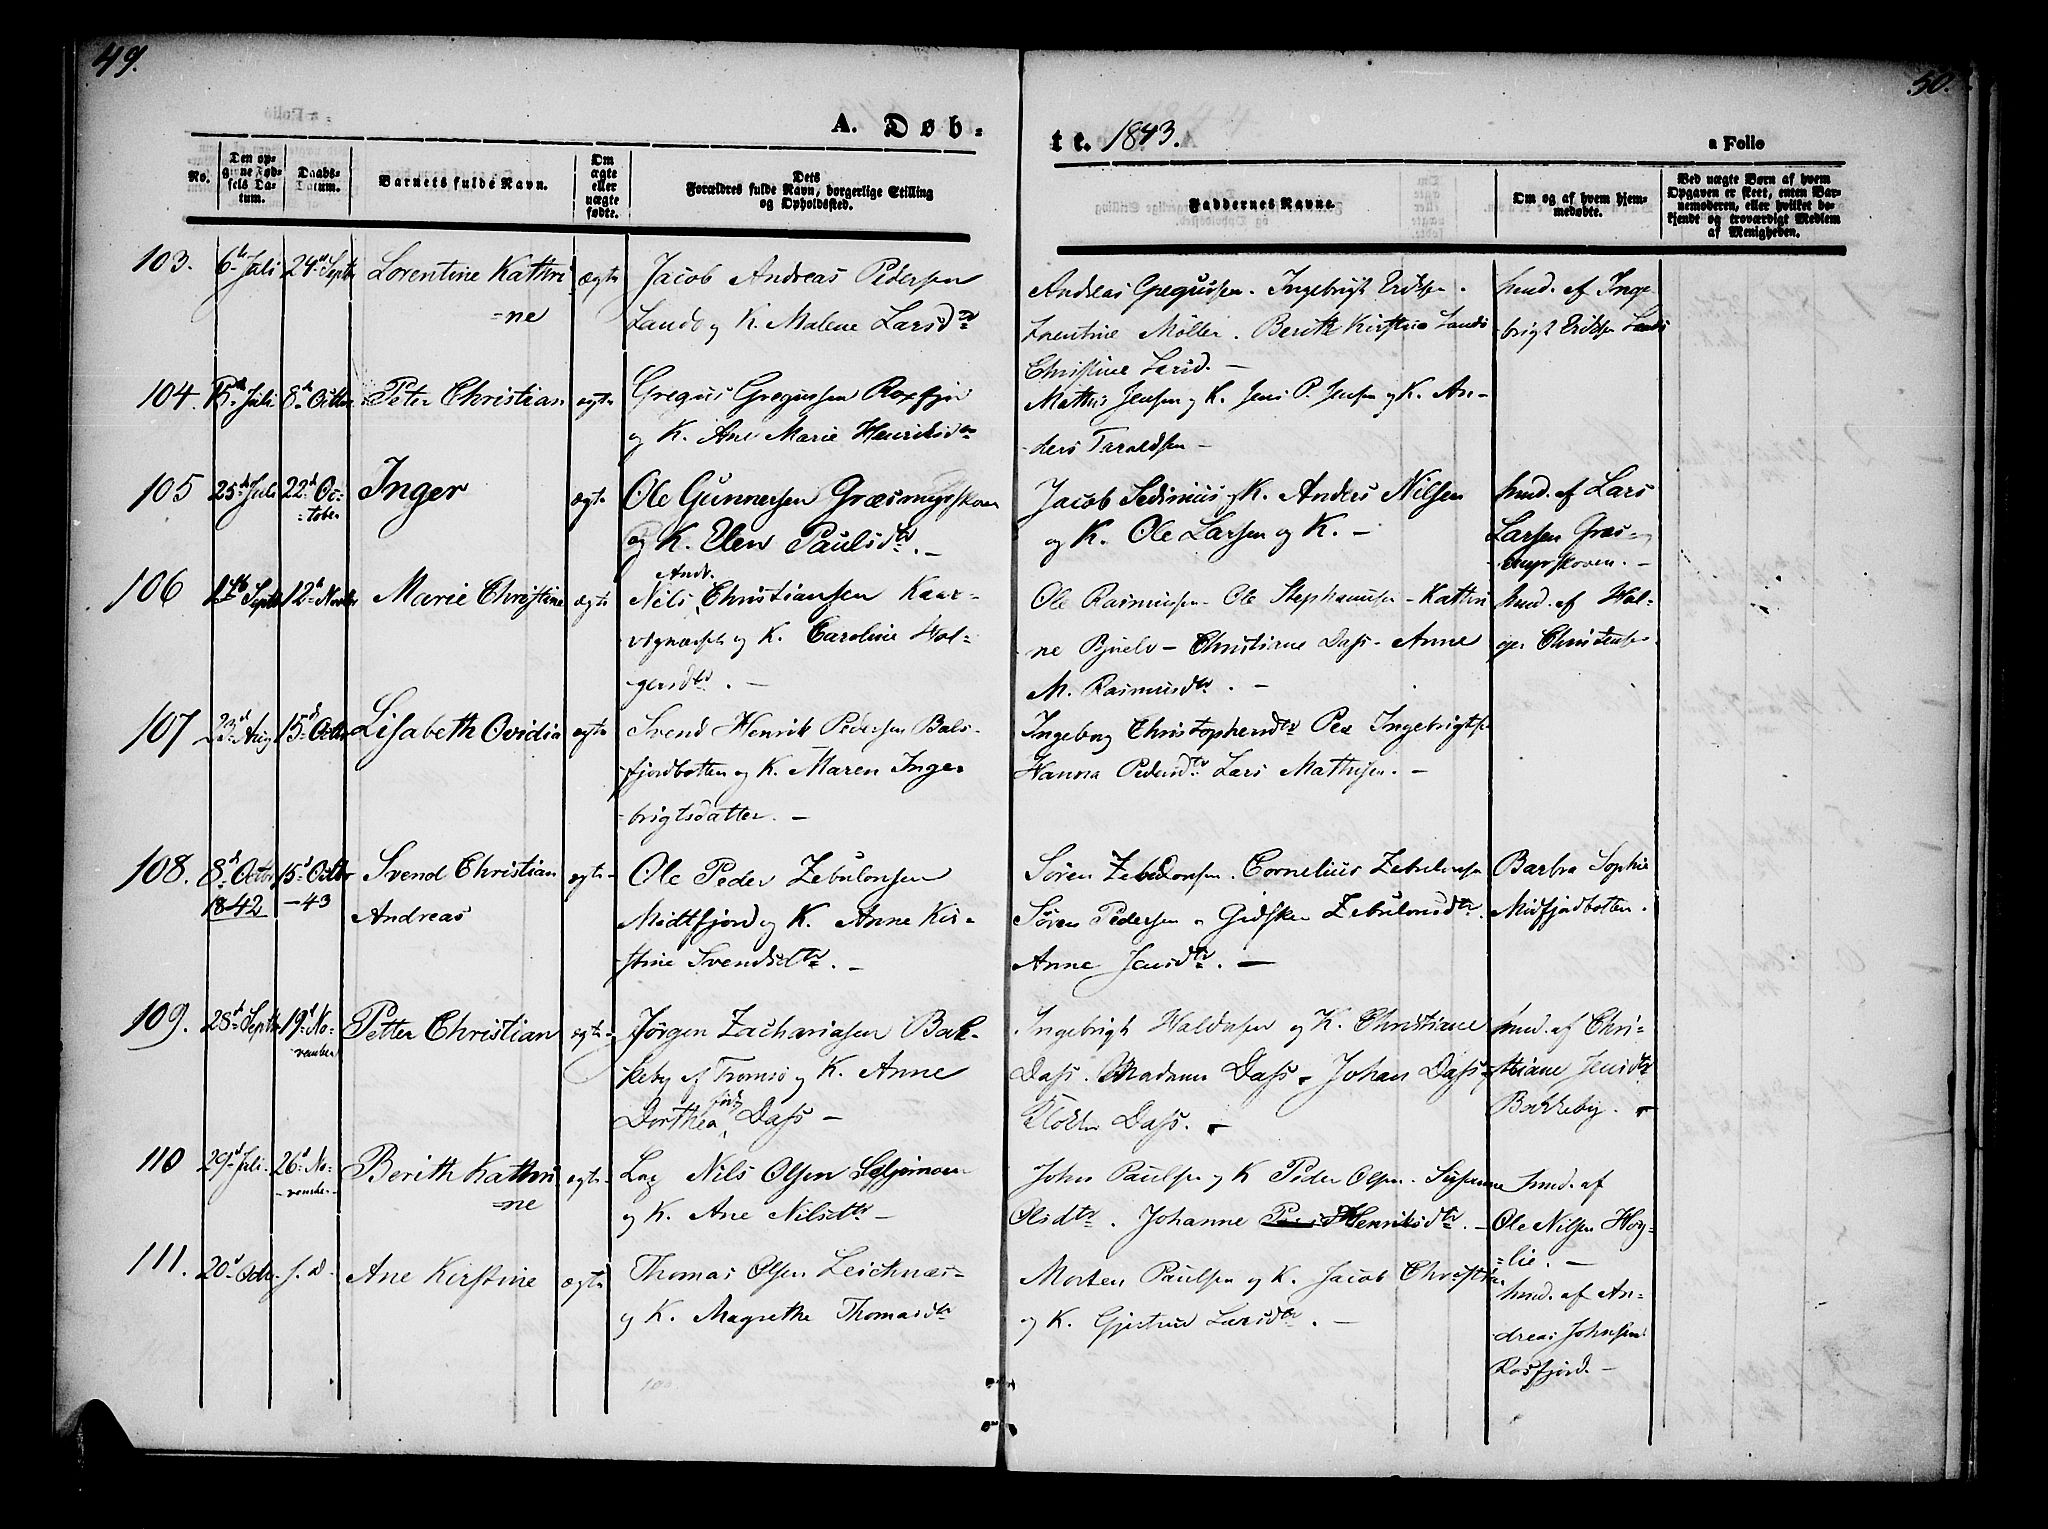 49.
50.
A. Døb-
te. 1843.
a Folio
No.
Den op-
givne Fød-
sels Da-
tum.
Daabs-
Datum.
Barnets fulde Navn.
Om
ægte
eller
uægte
fødte.
Dets
Forældres fulde Navn, borgerlige Stilling
og Opholdssted.
Faddernes Navne.
Om og af hvem hjem-
medøbte.
Ved uægte Børn af hvem
Opgaven er skeet, enten Bar-
nemoderen, eller hvilket be-
kjendt og troværdigt Medlem
af Menigheden.
103. 6 Juli 24 Septr Lorentine Kathri ægte Jacob Andreas Pedersen
=ne
og K. Malene Larsdtr
Andreas Gregusen. Ingebrigt Eriksen.
Lorentine Möller. Berith Kirstine
Christine Larsd. –
hmd. af Inge
brigt Eriksen
104. 15 Juli 8 Octbr Peter Christian ægte Gregus Gregussen
og K. Ane Marie Henriksdtr
Mathis Jensen og K. Jens P. Jensen og K. An-
ders Taraldsen –
105 25d Juli 22d Oc-
=tober
Inger ægte Ole Gunnersen Græsmyrskoven
og K. Elen Paulsdtr. –
Jacob Sedinius og K. Anders Nilsen
og K. Ole Larsen og K. –
hmd. af Lars
Larsen Græs-
myrskoven. –
106 Septr 12 Novbr Marie Christine ægte
Andr.
Nils Christiansen Kaar-
og K. Caroline Hol-
gersdtr. –
Ole Rasmusen – Ole Stephanusen – Kathri
ne Bjuelv – Christiane Dass – Anne
M. Rasmusdtr. –
hmd. af Hol-
ger Christensen
107 23d Aug 15d Octbr Lisabeth Ovidia ægte Svend Henrik Pedersen Bals-
fjordbotten og K. Maren Inge-
brigtsdatter. –
Ingeborg Christophersdtr Per Ingebrigtsen
Hanna Pedersdtr Lars Mathisen. –
108. 8d Octbr
1842
15d Octbr
–43
Svend Christian
Andreas
ægte Ole Peder Zebulonsen
Midtfjord og K. Anne Kir-
stine Svendsdtr. –
Sören Zebulonsen. Cornelius Zebulonsen
Sören Pedersen Gidsken Zebulonsdtr.
Anne Jensdtr. –
Barbra Sophie
Midfjordbotten.
109. 28d Septbr 19d No-
vember
Petter Christian ægte Jörgen Zachariasen Bak-
keby af Tromsö og K. Anne
Dorthea född Dass –
Ingebrigt Haldusen og K. Christiane
Dass. Madame Dass. Johan Dass
Dass. –
hmd. af Chri-
stiane Jensdtr
Bakkeby. –
110 29d Juli 26d No-
vember
Berith Kathri
=ne
ægte Lap Nils Olsen
og K. Ane Nilsdtr –
John Paulsen og K Peder Olsen. Susanne
Olsdtr. Johanne Henriksdtr. –
hmd. af
Ole Nilsen Hoy-
=lie. –
111. 20d Octbr. s. d. Ane Kirstine ægte Thomas Olsen Leichnæs
og K. Magrethe Thomasdtr
Morten Paulsen og K. Jacob Christian
og K. Gjertrud Larsdtr. –
hmd. af An-
dreas Johnsen
Rosfjord. –